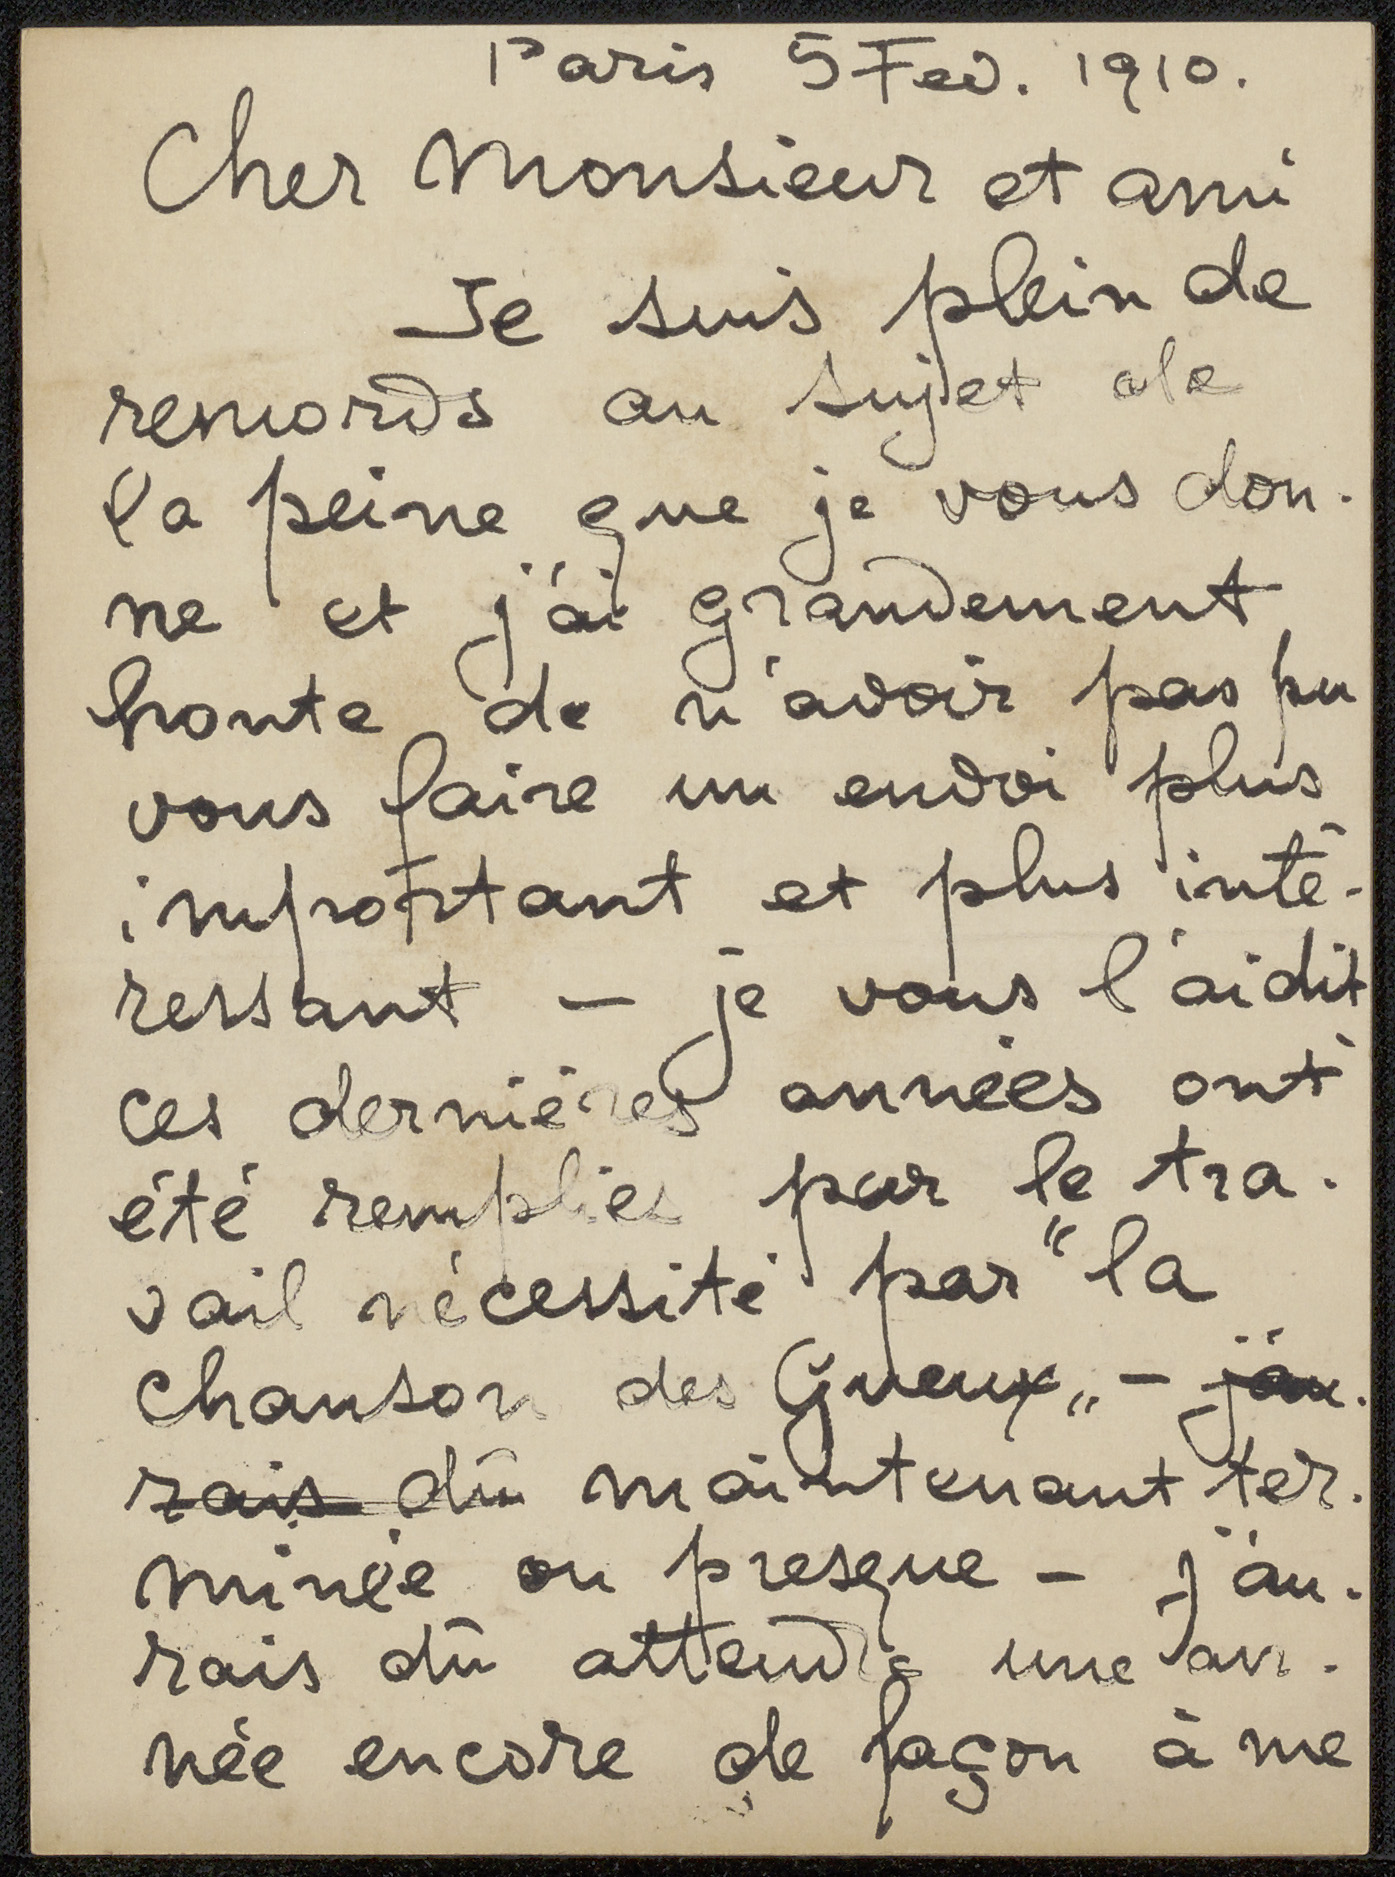 Paris 5 Fev. 1910.
Cher Monsieur et ami
Je suis plein de
remords au sujet de
la peine que je vous don-
ne et j'ai grandement
honte de n'avoir pas pu
vous faire un envoi plus
important et plus inté-
ressant – je vous l'ai dit
ces dernières années ont
été remplies par le tra-
vail nécessité par "la
chanson des Gueux" – j'au-
rais dû maintenant ter-
minée ou presque – j'au-
rais dû attendre une an-
née encore de façon à me